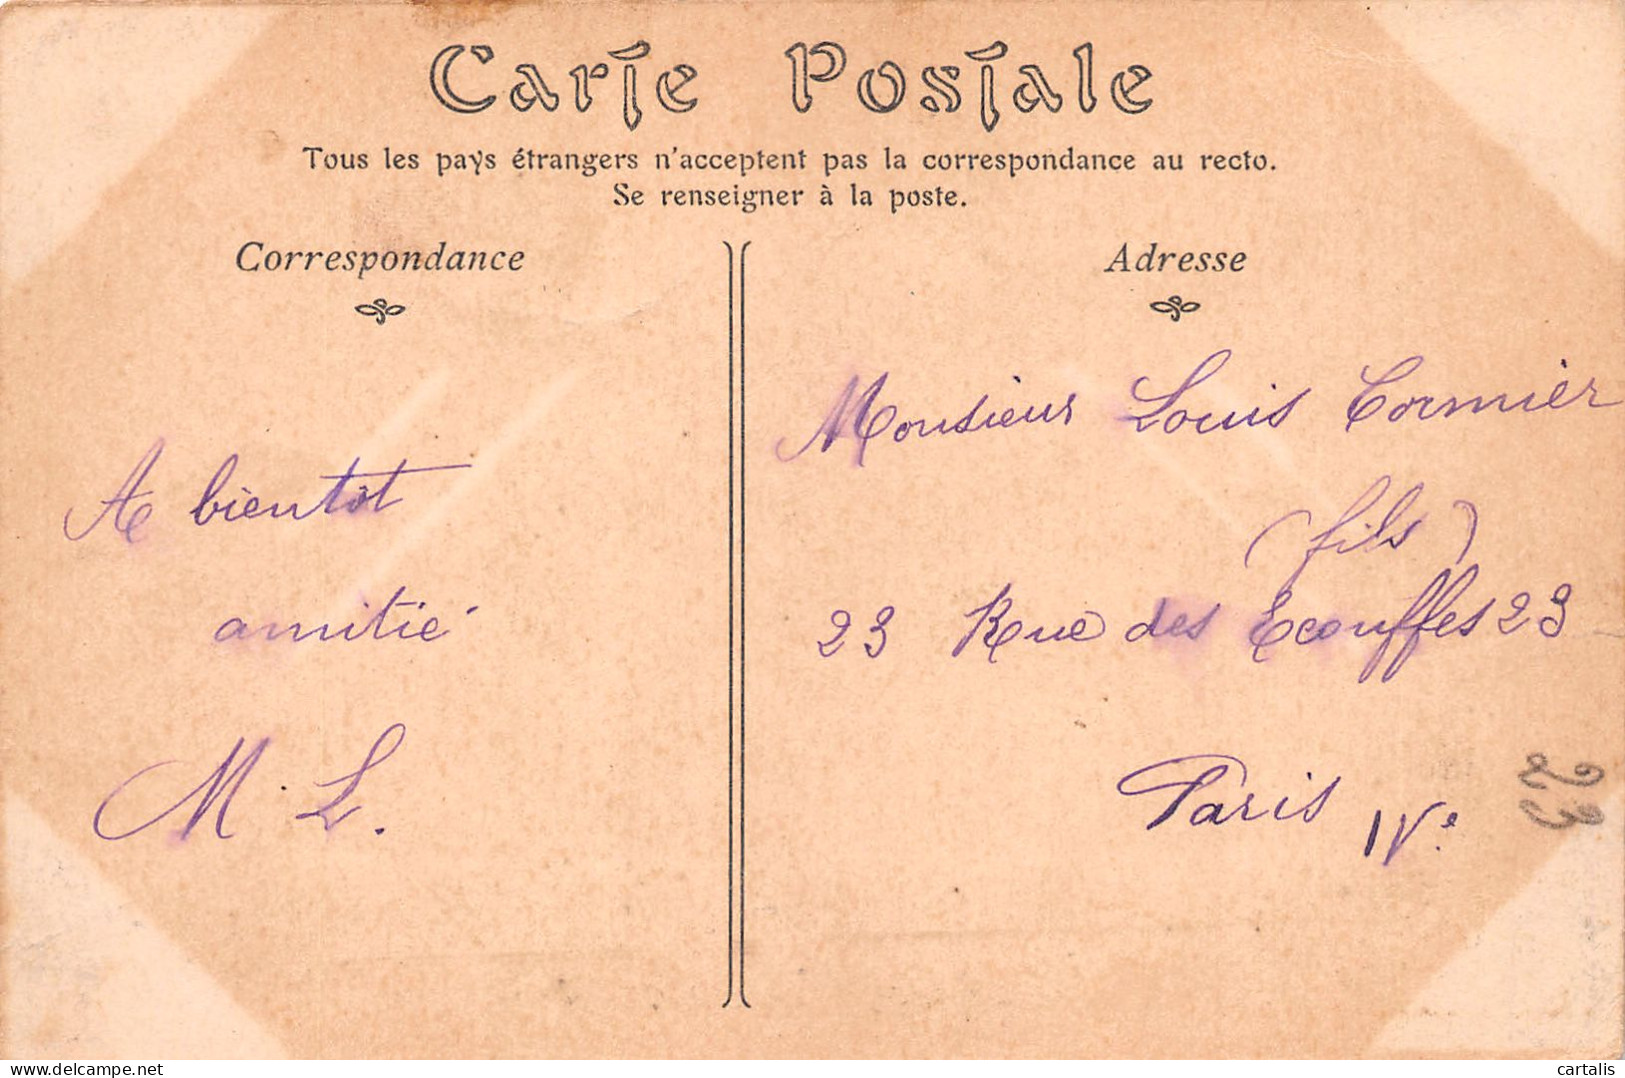 Carte Postale
Tous les pays étrangers n'acceptent pas la correspondance au recto.
Se renseigner à la poste.
Correspondance
A bientôt
amitié
M. L.
Adresse
Monsieur Louis Cormier
(fils)
23 Rue des Ecouffes 23
Paris IVe
23
delcampe.net
cartalis